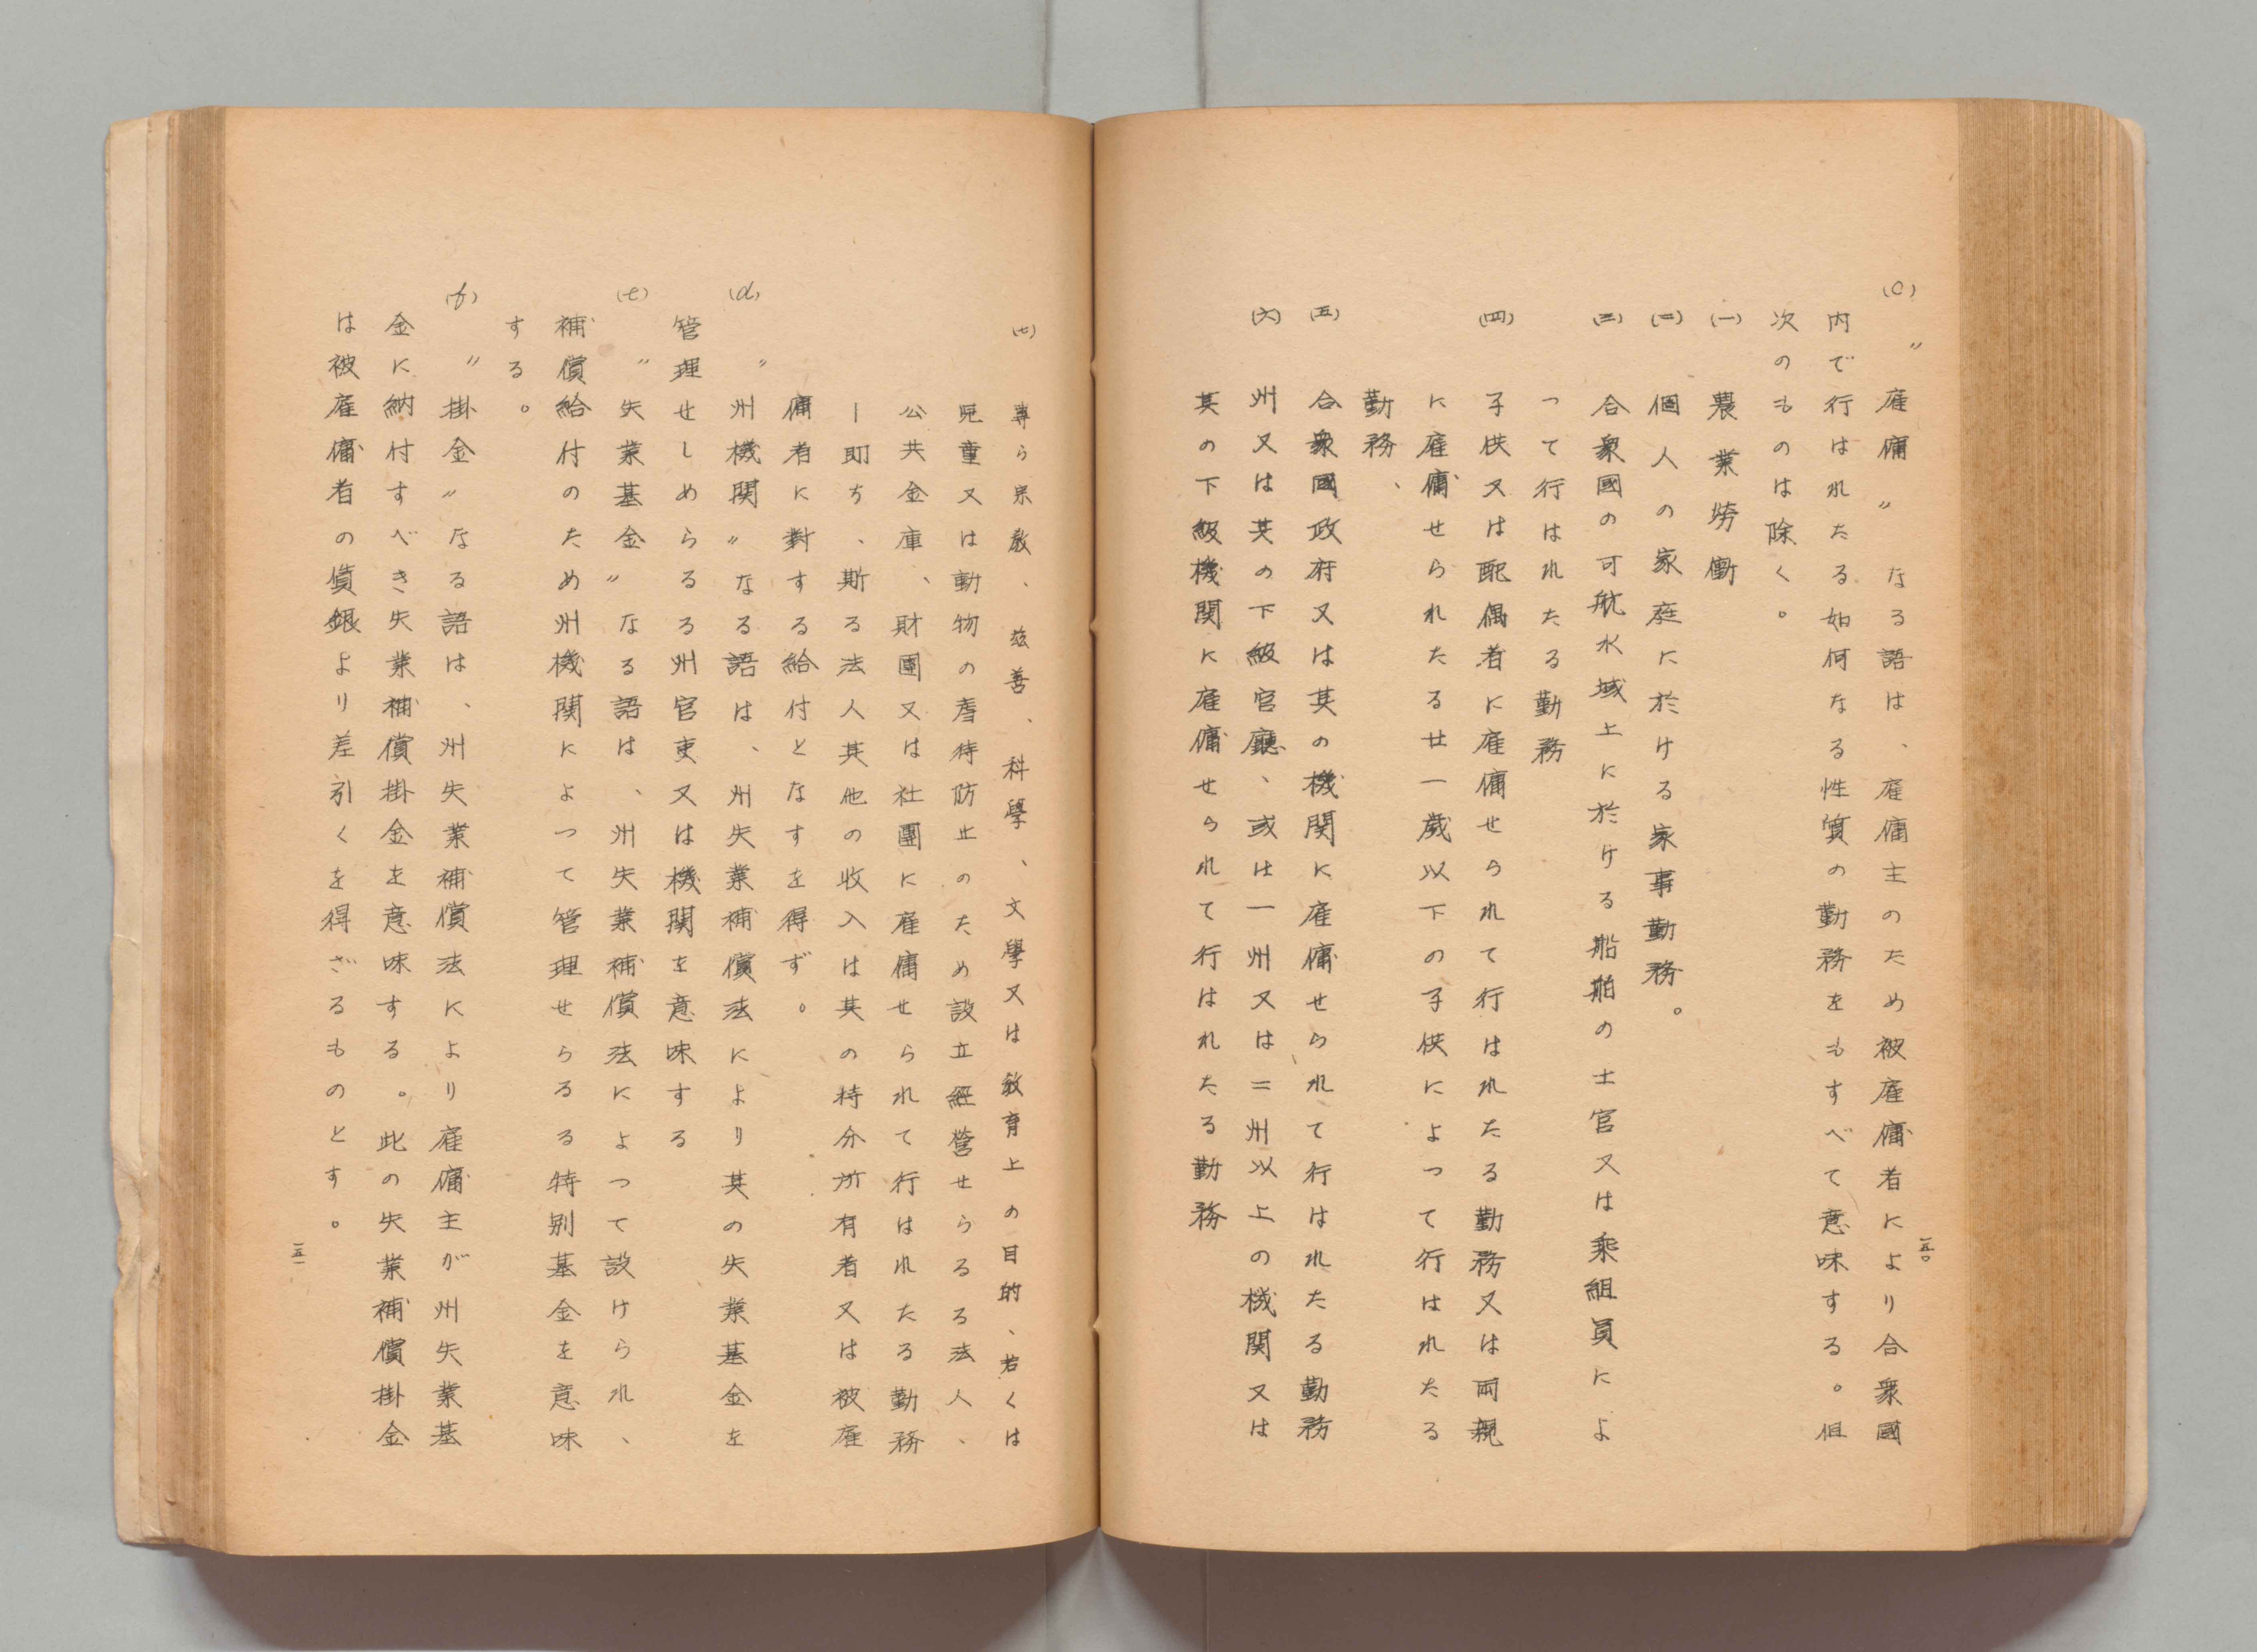 (c) 〃雇傭〃なる語は、雇傭主のため被雇傭者により合衆國
内で行はれたる如何なる性質の勤務をもすべて意味する。但
次のものは除く。
(一) 農業勞働
(二) 個人の家庭に於ける家事勤務。
(三) 合衆國の可航水域上に於ける船舶の士官又は乘組員によ
つて行はれたる勤務
(四) 子供又は配偶者に雇傭せられて行はれたる勤務又は両親
に雇傭せられたる廿一歳以下の子供によつて行はれたる
勤務、
(五) 合衆國政府又は其の機関に雇傭せられて行はれたる勤務
(六) 州又は其の下級官廳、或は一州又は二州以上の機関又は
其の下級機関に雇傭せられて行はれたる勤務
一五〇
(七) 專ら宗教、慈善、科學、文學又は教育上の目的、若くは
児童又は動物の虐待防止のため設立經営せらるる法人、
公共金庫、財團又は社團に雇傭せられて行はれたる勤務
ー即ち、斯る法人其他の收入は其の持分所有者又は被雇
傭者に對する給付となすを得ず。
(d) 〃州機関〃なる語は、州失業補償法により其の失業基金を
管理せしめらるる州官吏又は機関を意味する
(e) 〃失業基金〃なる語は、州失業補償法によつて設けられ、
補償給付のため州機関によつて管理せらるる特別基金を意味
する。
(f) 〃掛金〃なる語は、州失業補償法により雇傭主が州失業基
金に納付すべき失業補償掛金を意味する。此の失業補償掛金
は被雇傭者の賃銀より差引くを得ざるものとす。
一五一